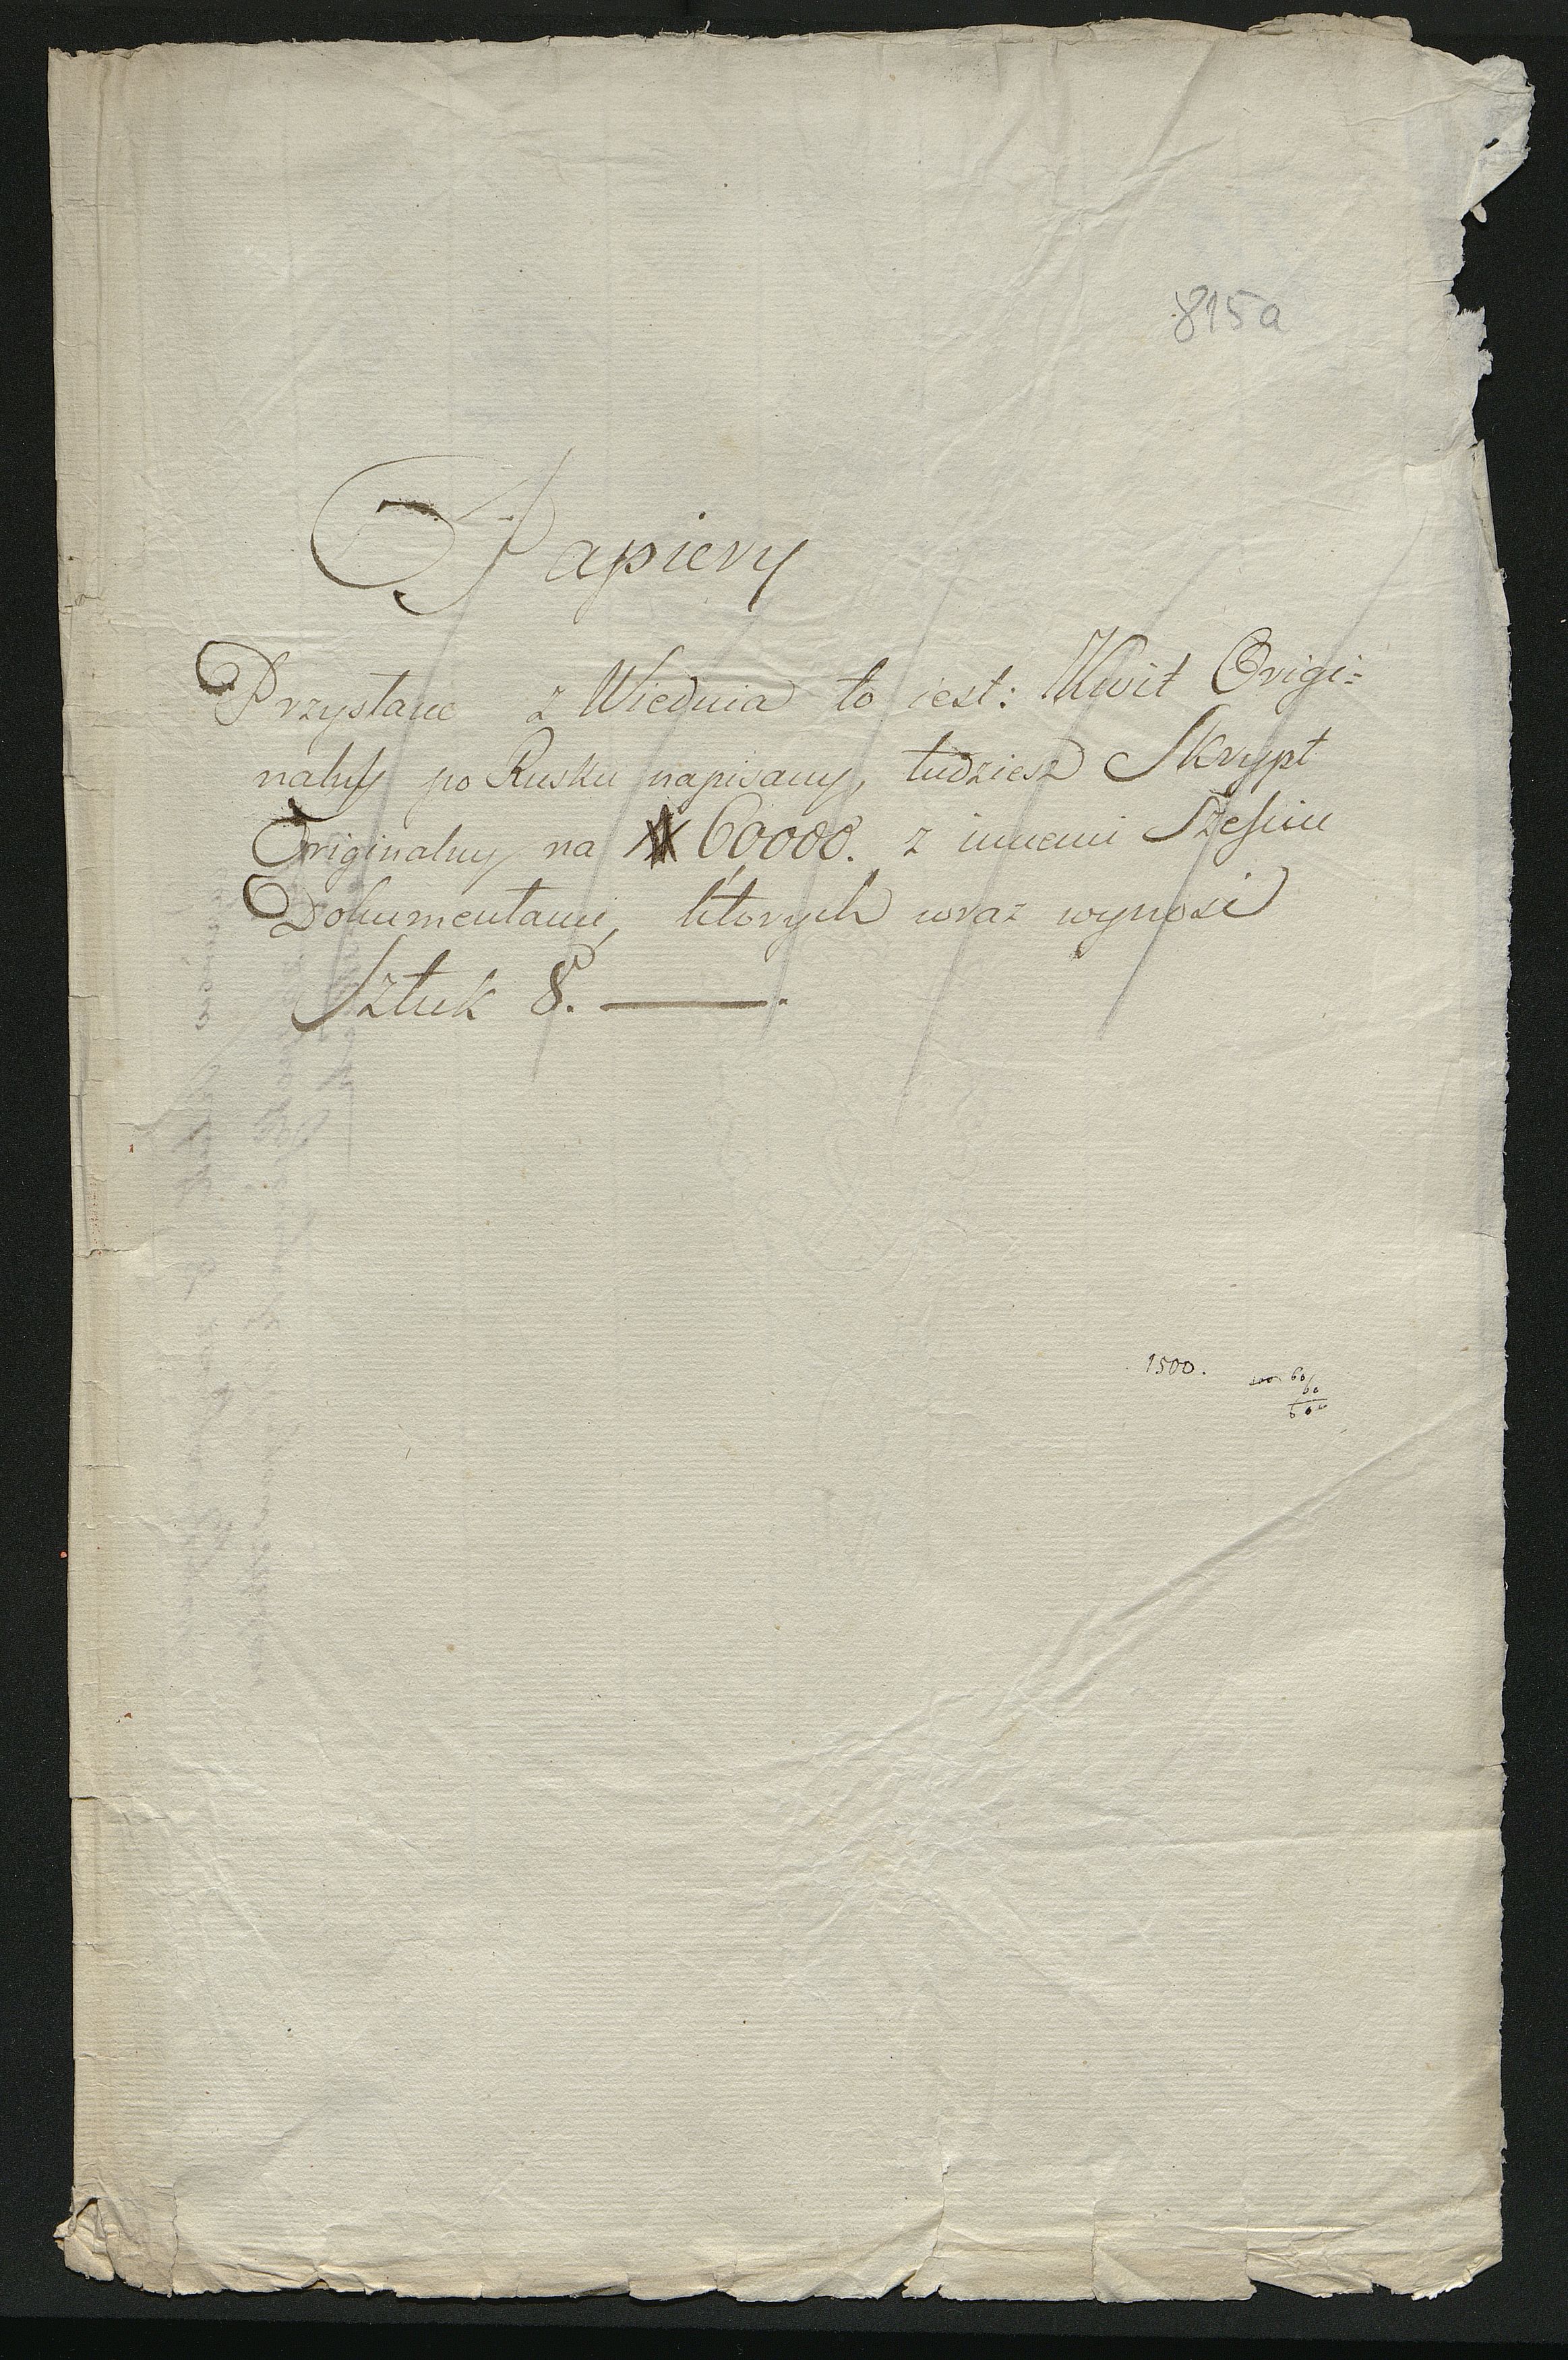 815a
Papiery
Przysłane z Wiednia to iest: Kwit Origi=
nalny po Rusku napisany, tudziesz Skrypt
Originalny na 60000. z innemi Sześciu
Dokumentami, których wraz wynosi
Sztuk 8.
1500.
60